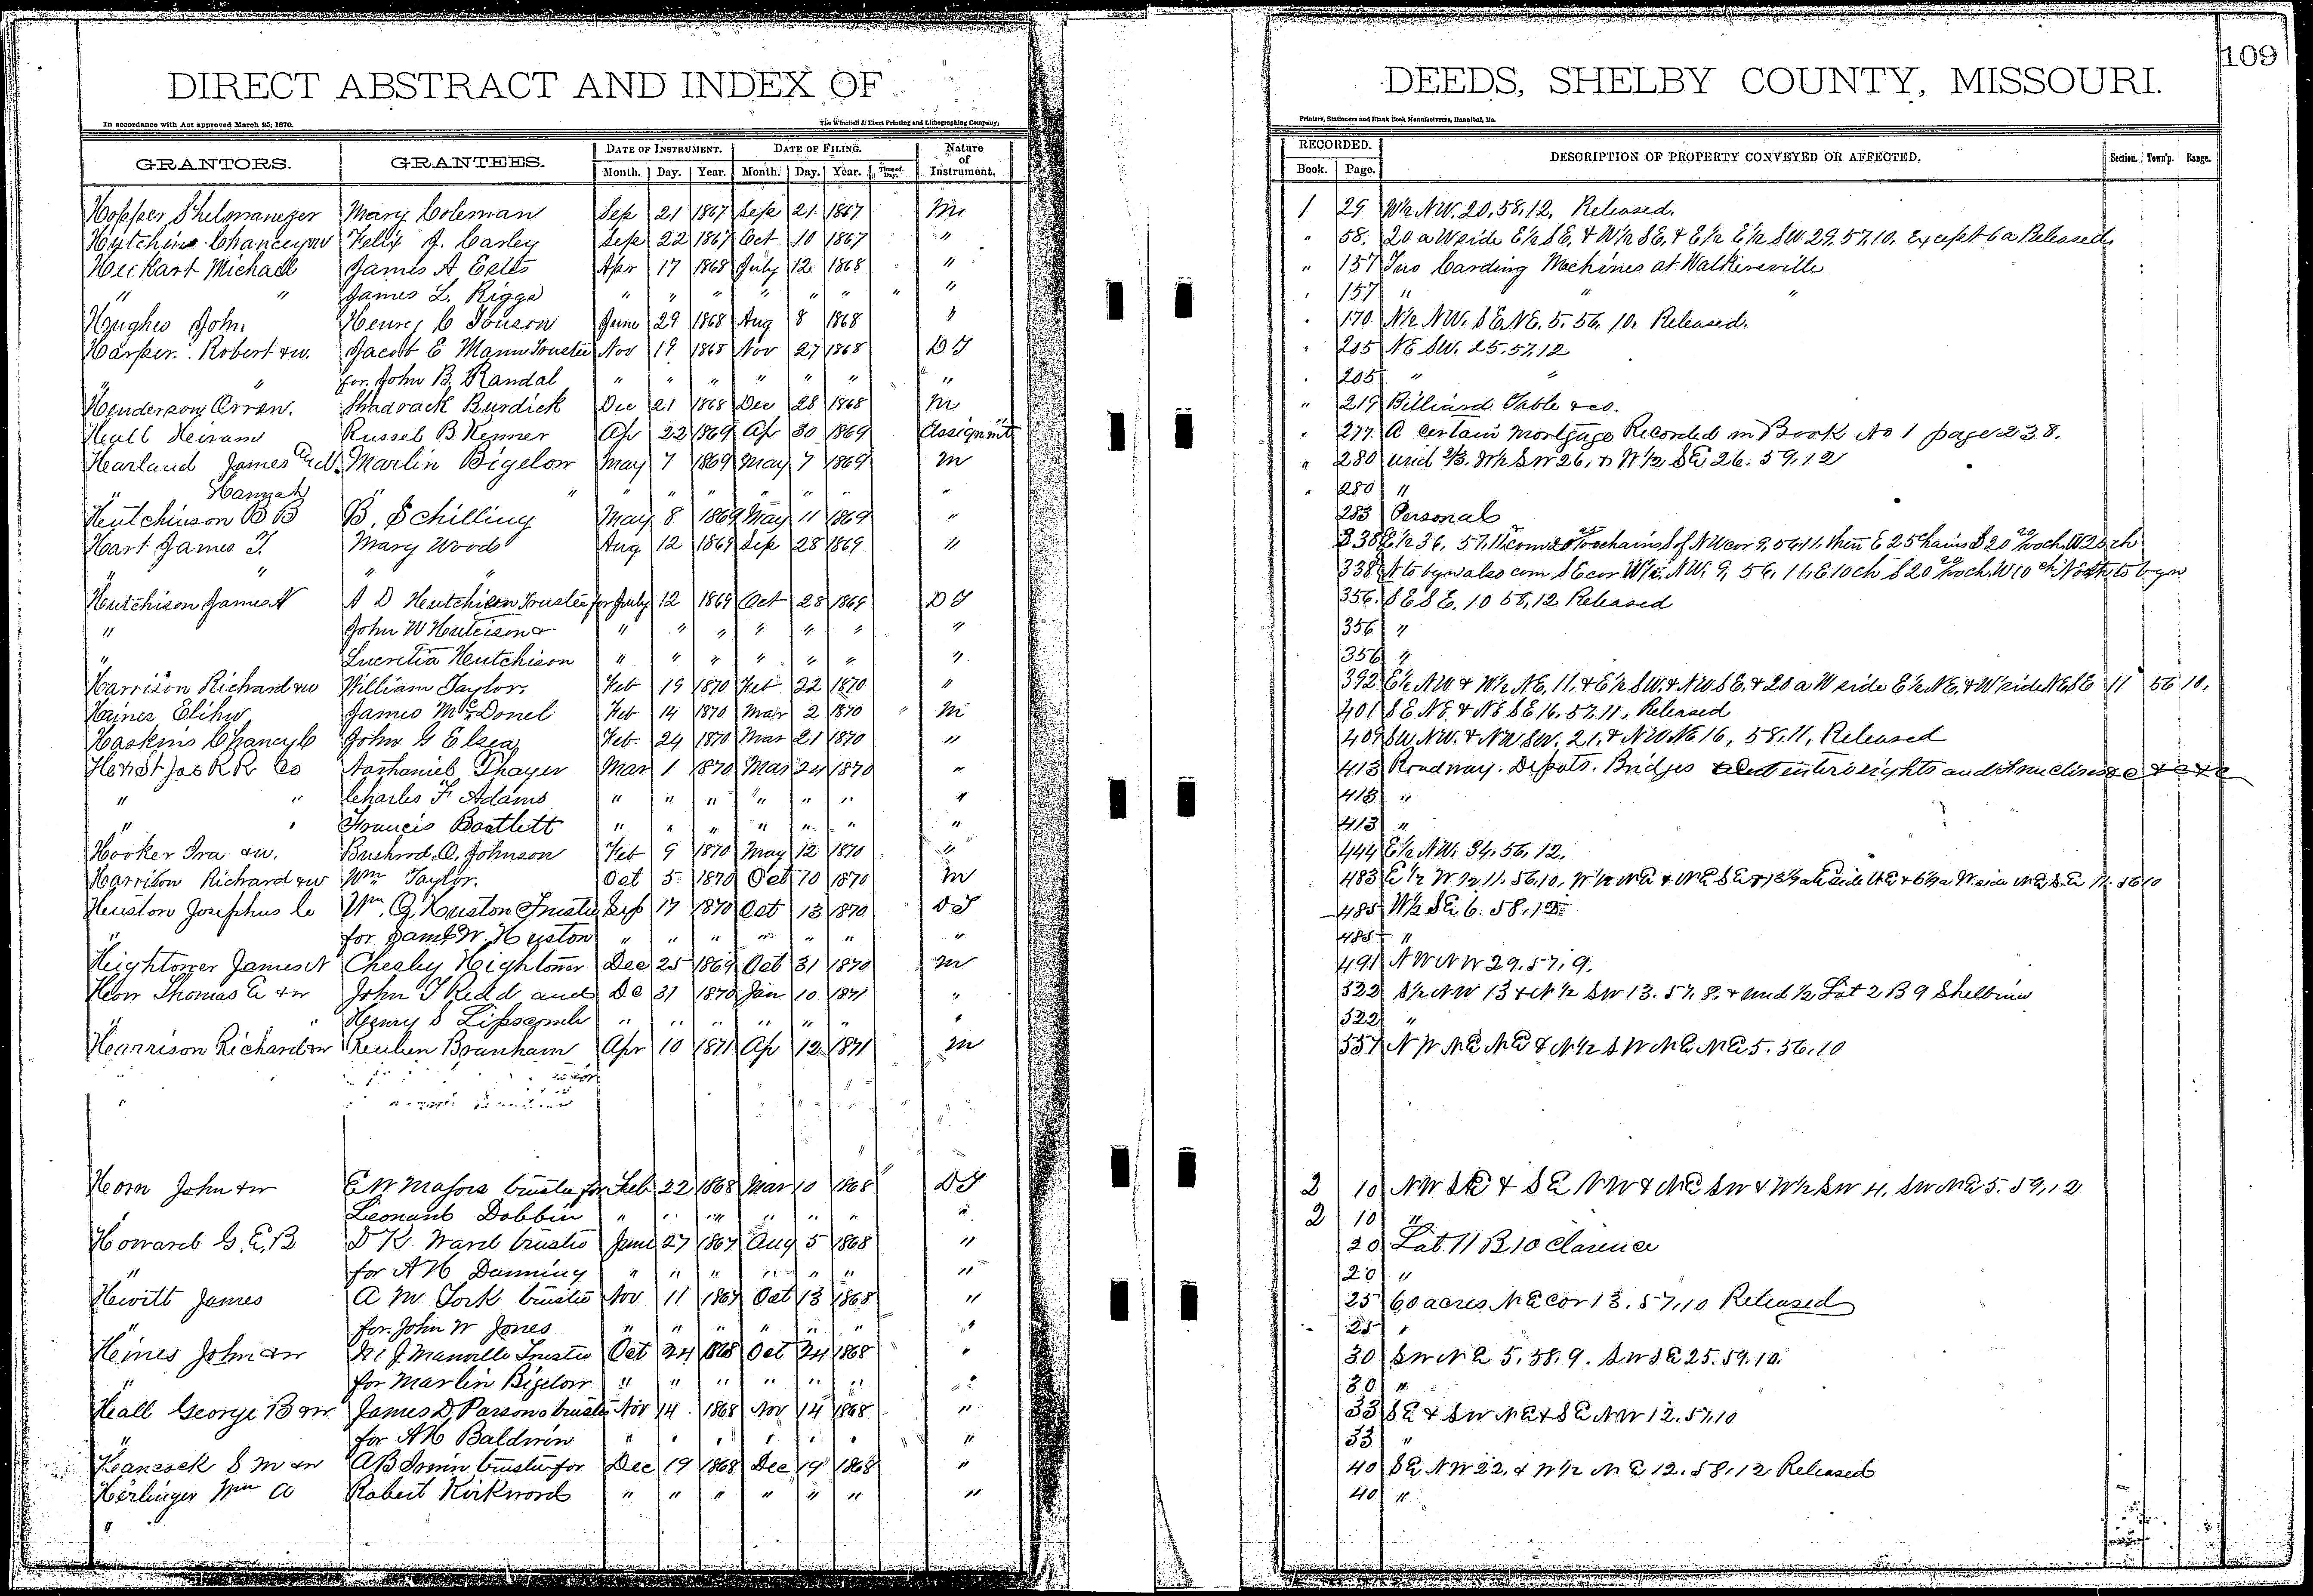 DIRECT ABSTRACT AND INDEX OF
In accordance with Act approved March 25, 1870.
The Winchell & Ebert Printing and Lithographing Company,
GRANTORS. GRANTEES. DATE OF INSTRUMENT. DATE OF FILING. Nature of Instrument.
Month. Day. Year. Month. Day. Year. Time of Day.
Hopper Mary Coleman Sep 21 1867 Sep 21 1867 M
Hutchins Chancey &w Felix J. Carley Sep 22 1867 Oct 10 1867 "
Heckart Michael James A Eells Apr 17 1868 July 12 1868 "
" " James L. Riggs " " " " " " " "
Hughes John Henry C June 29 1868 Aug 8 1868 "
Harper Robert &w. Jacob E Mann Trustee Nov 19 1868 Nov 27 1868 D T
" for John B. Randal " " " " " " "
Henderson Orren. Shadrack Burdick Dec 21 1868 Dec 28 1868 M
Hall Heiram Russel B Kenner Ap 22 1869 Ap 30 1869 Assignmt
Harland James Marlin Bigelow May 7 1869 May 7 1869 M
" Hannah " " " " " " " " "
Hutchinson B B B. Schilling May 8 1869 May 11 1869 "
Hart James T. Mary Wood Aug 12 1869 Sep 28 1869 "
" " "
Hutchison James N A D Hutchison Trustee for July 12 1869 Oct 28 1869 D T
" John W Hutcison & " " " " " " "
" Lucretia Hutchison " " " " " " "
Harrison Richard &w William Taylor. Feb 19 1870 Feb 22 1870 "
Haines Elihu James McDonel Feb 14 1870 Mar 2 1870 " M
Haskins Chancy C John G Elsea Feb. 24 1870 Mar 21 1870 "
Han & St Jos R R Co Nathaniel Thayer Mar 1 1870 Mar 24 1870 "
" " Charles F Adams " " " " " " "
" " Francis Bartlett " " " " " " "
Hooker Ira &w. Bushrod Q. Johnson Feb 9 1870 May 12 1870 "
Harrison Richard &w Wm Taylor. Oct 5 1870 Oct 10 1870 M
Huston Josephus C Wm. G. Huston Trustee Sep 17 1870 Oct 13 1870 D T
for James W. Huston " " " " " " "
Hightower James N Chesley Hightower Dec 25 1869 Oct 31 1870 M
Horn Thomas E &w John T Redd and De 31 1870 Jan 10 1871 "
" " Henry S Lipscomb " " " " " " "
Harrison Richard &w Reuben Branham Apr 10 1871 Ap 12 1871 M
Horn John &w E W Majors trustee for Feb 22 1868 Mar 10 1868 D T
Leonard Dobbin " " " " " " "
Howard G. E. B D K Ward trustee June 27 1867 Aug 5 1868 "
" for A H Dunning " " " " " " "
Hewitt James A M York trustee Nov 11 1867 Oct 13 1868 "
" for John W Jones " " " " " " "
Heines John &w J Manville Trustee Oct 24 1868 Oct 24 1868 "
for Marlin Bigelow " " " " " " "
Hall George B &w James D. Parsons trustee Nov 14 1868 Nov 14 1868 "
" for A H Baldwin " " " " " " "
Hancock S M &w A B Irwin trustee for Dec 19 1868 Dec 19 1868 "
Herlinger Wm A Robert Kirkwood " " " " " " "
"
109
DEEDS, SHELBY COUNTY, MISSOURI.
Printers, Stationers and Blank Book Manufacturers, Hannibal, Mo.
RECORDED. DESCRIPTION OF PROPERTY CONVEYED OR AFFECTED. Section. Town'p. Range.
Book. Page.
1 29 W½ NW. 20, 58, 12, Released.
" 58. 20 a W side E½ SE, & W½ SE, & E½ E½ SW 29, 57, 10, Except 6 a Released
" 157 Two Carding Machines at Walkersville
" 157 " " "
" 170 N½ NW, SE NE, 5, 56, 10, Released.
" 205 NE SW. 25, 57, 12
" 205 " "
" 219 Billiard Table &co.
" 277. A Certain Mortgage Recorded in Book No 1 page 238.
" 280 und ⅔ W½ SW 26, & W½ SE 26. 59, 12
" 280 "
283 Personal
338 E½ 36, 57, 11, com 20 25/100 chains S of NW cor 9, 56, 11, then E 25 Chains S 20 20/100 ch W 25 ch
338 N to bgn also com SE cor W½ NW, 9, 56, 11, E 10 ch S 20 20/100 ch W 10 ch North to bgn
356. SE SE. 10 58, 12 Released
356 "
356 "
392 E½ NW & W½ NE, 11, & E½ SW, & NW SE, & 20 a W side E½ NE, & W side NE SE 11 56 10,
401 SE NE & NE SE 16, 57, 11, Released
409 SW NW. & NW SW, 21, & NW NE 16, 58, 11, Released
413 Roadway. Depots. Bridges entire rights and &c &c &c
413 "
413 "
444 E½ NW, 34, 56, 12,
483 E½ W½ 11. 56, 10, W½ NE & NE SE & 13½ a E side NE & 6½ a W side NE SE 11. 56 10
485 W½ SE 6. 58, 12
485 "
491 NW NW 29. 57, 9.
522 S½ NW 13 & N½ SW 13. 57, 8. & und ½ Lot 2 B 9 Shelbina
522 "
557 NW NE NE & N½ SW NE NE 5. 56, 10
2 10 NW SE & SE NW & NE SW & W½ SW 4. SW NE 5. 59, 12
2 10 "
20 Lot 11 B 10 Clarence
20 "
25 60 acres NE cor 13. 57, 10 Released
25 "
30 SW NE 5, 58, 9. SW SE 25. 59, 10.
30 "
33 SE & SW NE & SE NW 12. 57, 10
33 "
40 SE NW 22. & W½ NE 12. 58, 12 Released
40 "